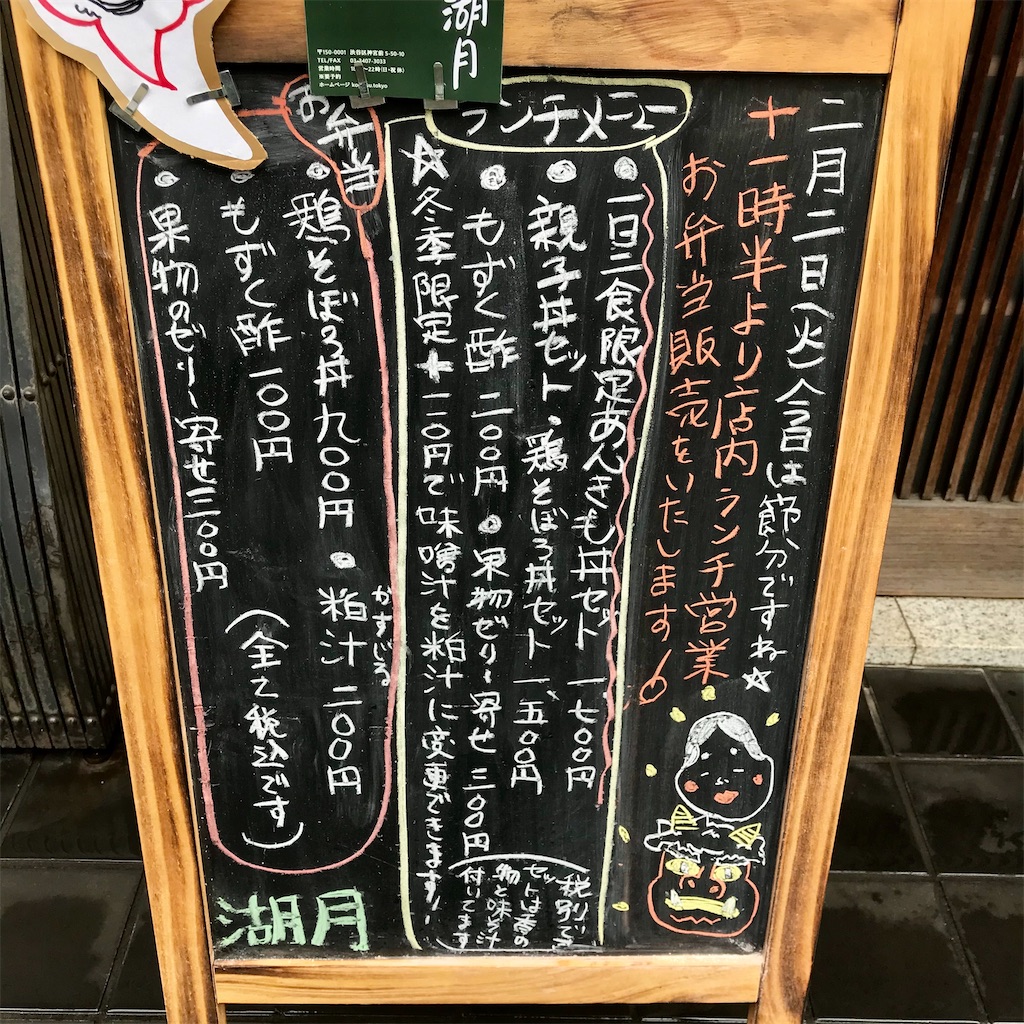 湖月
〒150-0001 渋谷区神宮前 5-50-10
TEL/FAX 03-3407-3033
営業時間
※要予約
ホームページ
二月二日(火)今日は節分ですね☆
十一時半より店内ランチ営業
お弁当販売をいたします
ランチメニュー
一日三食限定あんきも丼セット 一七〇〇円
親子丼セット・鶏そぼろ丼セット 一五〇〇円
もずく酢 二〇〇円 ● 果物ゼリー寄せ 三〇〇円
☆冬季限定+一一〇円で味噌汁を粕汁に変更できます!
税別です
セットは香の
物と味そ汁
付いてます
お弁当
鶏そぼろ丼 九〇〇円 ● 粕汁 二〇〇円
かすじる
もずく酢 一〇〇円
果物のゼリー寄せ二〇〇円
(全て税込です)
湖月